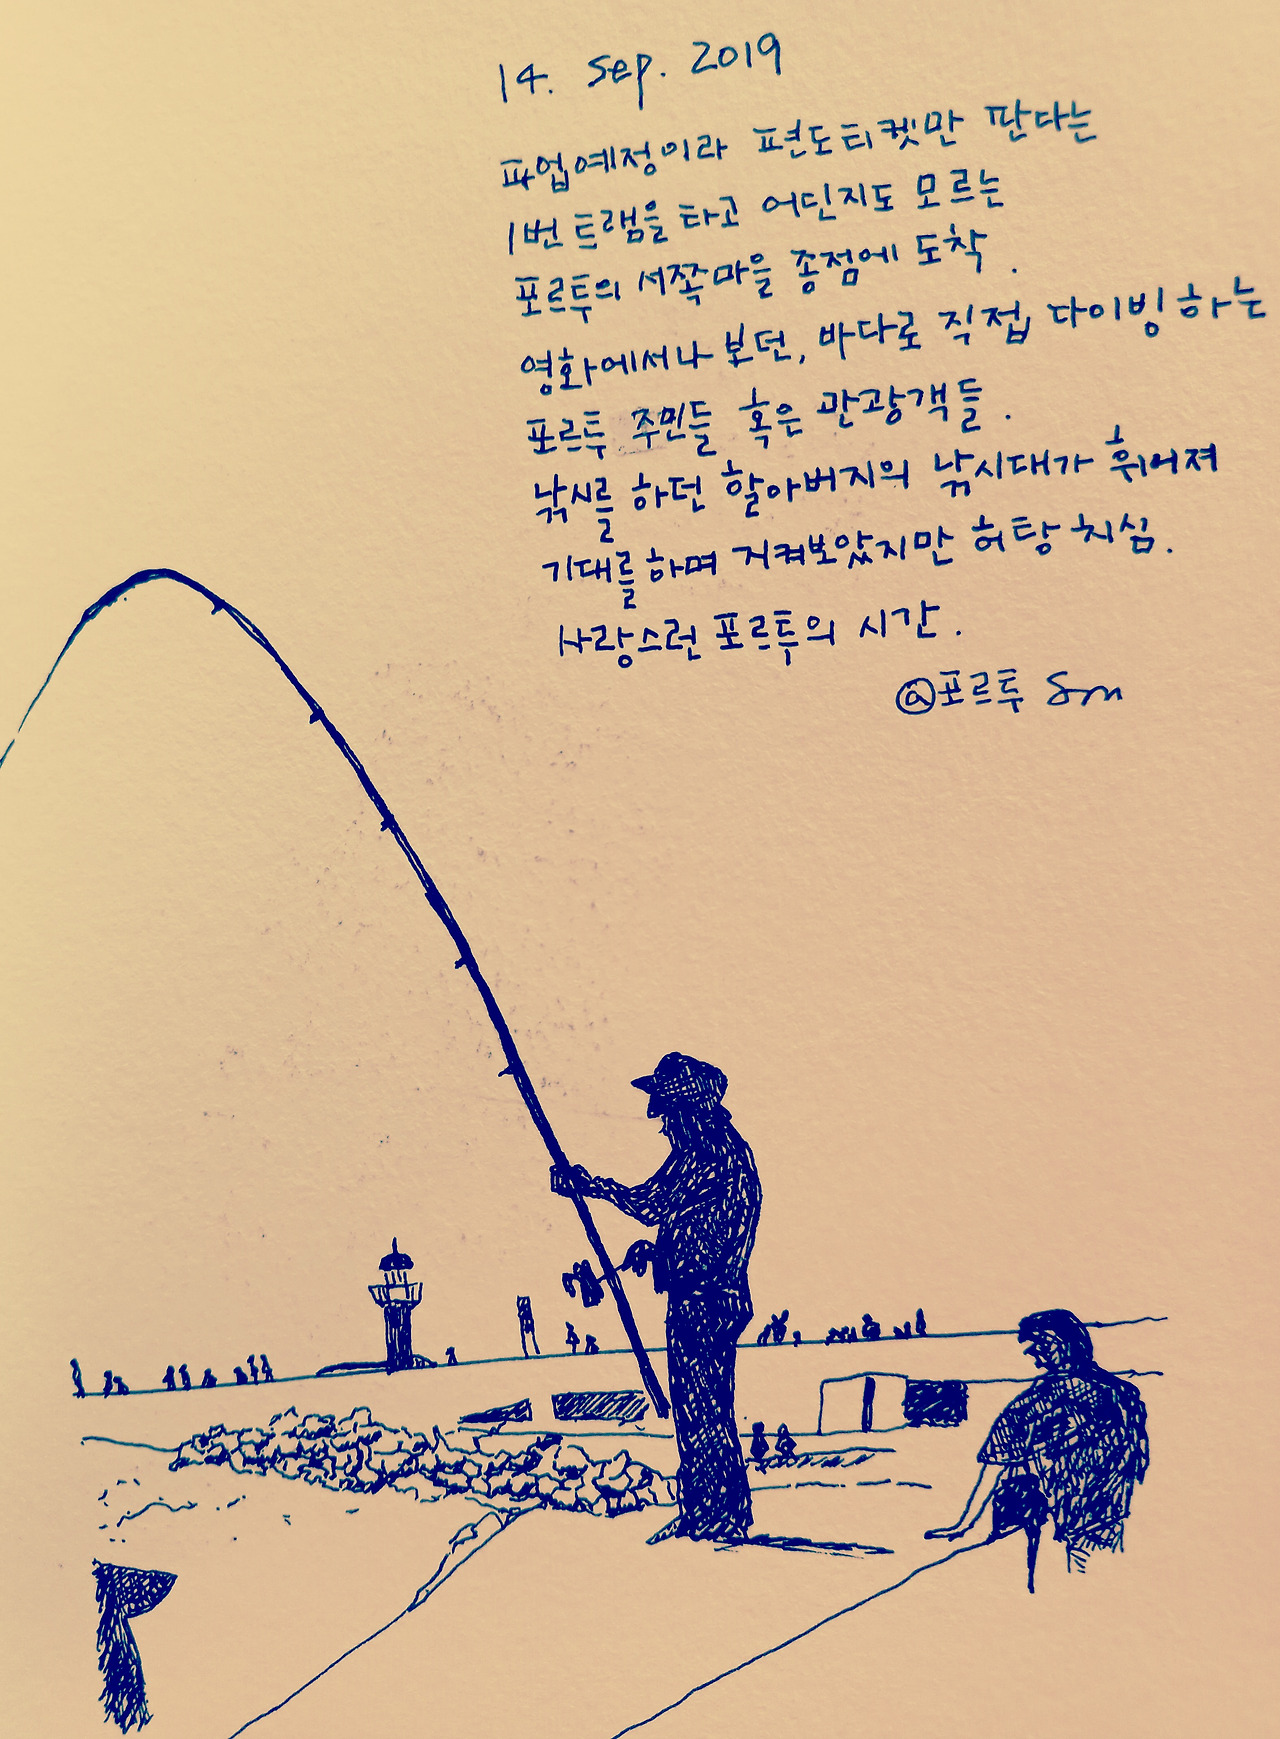 14. Sep. 2019
파업예정이라 편도티켓만 판다는
1번 트램을 타고 어딘지도 모르는
포르투의 서쪽마을 종점에 도착.
영화에서나 보던, 바다로 직접 다이빙 하는
포르투 주민들 혹은 관광객들.
낚시를 하던 할아버지의 낚시대가 휘어져
기대를 하며 지켜보았지만 허탕 치심.
사랑스런 포르투의 시간.
@포르투 Sm